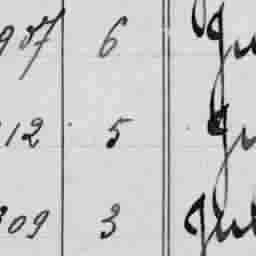 957 6 Ju
12 5 Ju
309 3 Jul